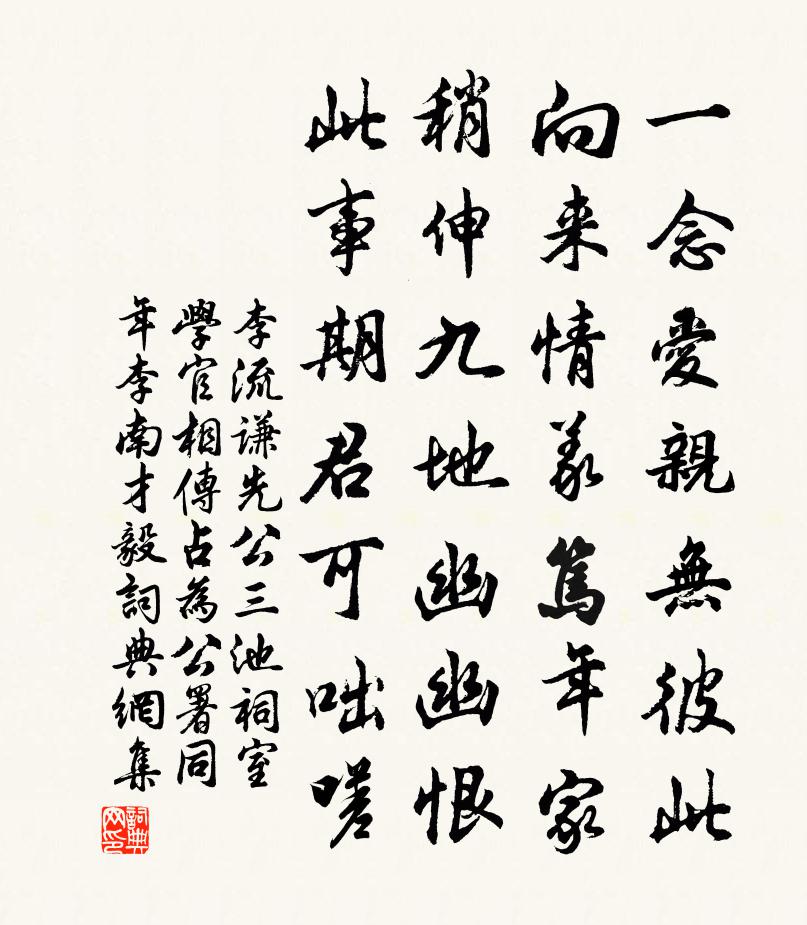 一念愛親無彼此
向来情義篤年家
稍伸九地幽幽恨
此事期君可咄嗟
李流谦先公三池祠室
學官相傳占為公署同
年李南才毅詞典網集
詞典网印